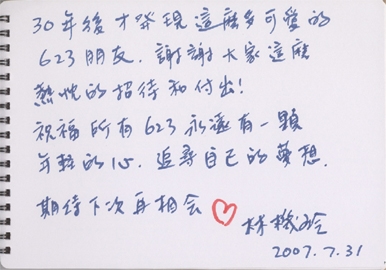 30年後才發現這麼多可愛的
623朋友.謝謝大家這麼
熱忱的招待和付出!
祝福所有623永遠有一顆
年輕的心.追尋自己的夢想.
期待下次再相会
林 玲
2007.7.31